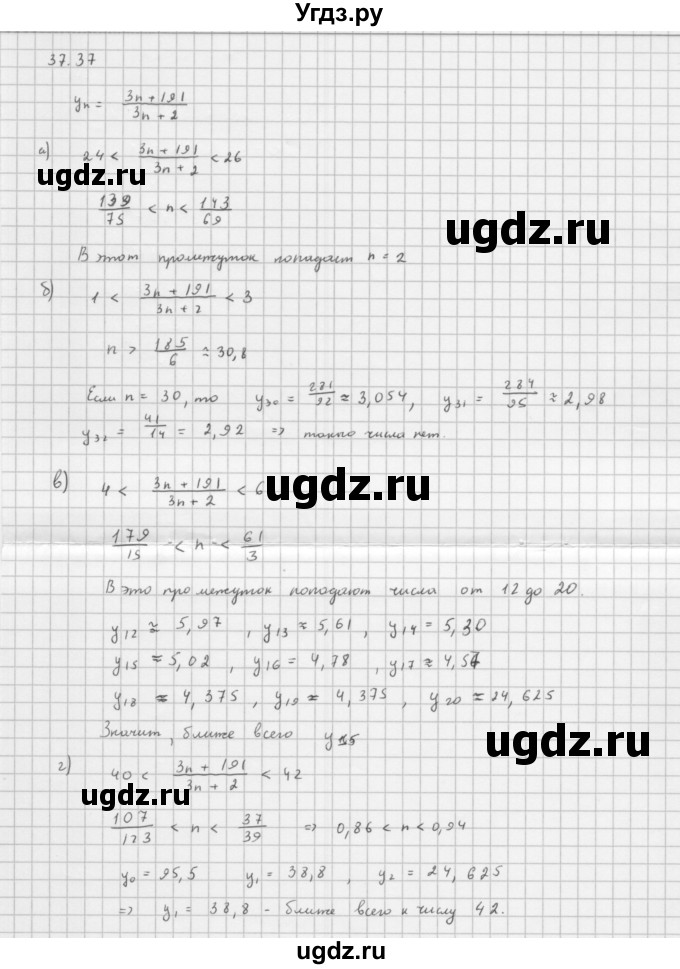 Угдз.ру
37.37
yn = (3n+191)/(3n+2)
а) 24 < (3n+191)/(3n+2) < 26
ugdz.ru
139/75 < n < 143/69
ugdz.ru
В этот промежуток попадает n = 2
б) 1 < (3n+191)/(3n+2) < 3
n > 185/6 ≈ 30,8
Если n = 30, то y30 = 281/92 ≈ 3,054, y31 = 284/95 ≈ 2,98
y32 = 41/14 = 2,92 => такго числа нет.
в) 4 < (3n+191)/(3n+2) < 6
ugdz.ru
179/15 < n < 61/3
В это промежуток попадают числа от 12 до 20.
y12 ≈ 5,97 , y13 ≈ 5,61 , y14 = 5,30
y15 ≈ 5,02 , y16 = 4,78 , y17 ≈ 4,57
y18 ≈ 4,375 , y19 ≈ 4,375 , y20 ≈ 24,625
Значит, ближе всего y15
ugdz.ru
г) 40 < (3n+191)/(3n+2) < 42
ugdz.ru
107/123 < n < 37/39 => 0,86 < n < 0,94
y0 = 95,5 y1 = 38,8 , y2 = 24,625
=> y1 = 38,8 - ближе всего к числу 42.
ugdz.ru